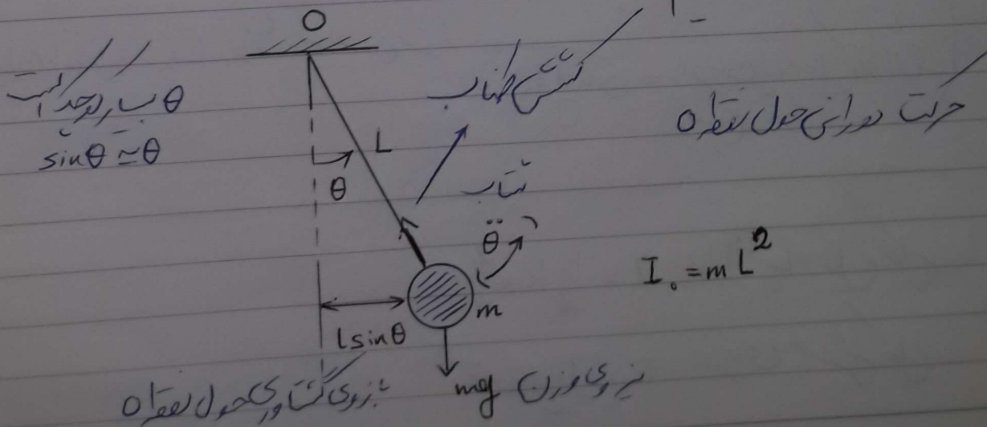 O
θ بسیار کوچک است
sinθ ≃ θ
کشش طناب
حرکت دورانی حول نقطه O
L
θ
شتاب
θ̈
I₀ = mL²
m
lsinθ
mg نیروی وزن
بازوی گشتاوری حول نقطه O